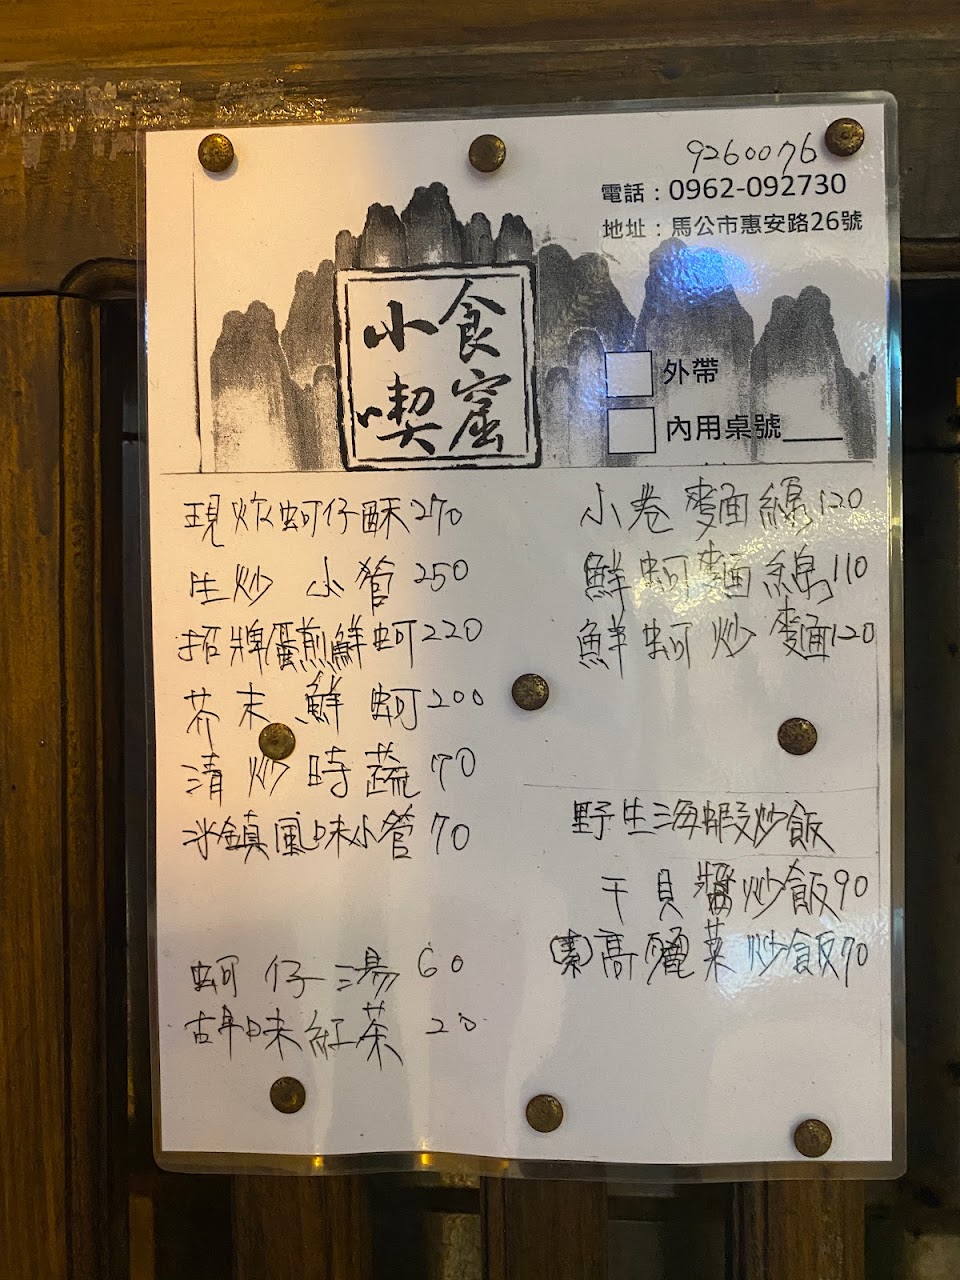 9260076
電話：0962-092730
地址：馬公市惠安路26號
食窟
小喫
外帶
內用桌號____
現炸蚵仔酥270
生炒小管250
招牌蛋煎鮮蚵220
芥末鮮蚵200
清炒時蔬70
冰鎮風味小管70
蚵仔湯60
古早味紅茶20
小卷麵線120
鮮蚵麵線110
鮮蚵炒麵120
野生海蝦炒飯
干貝醬炒飯90
(素)高麗菜炒飯70